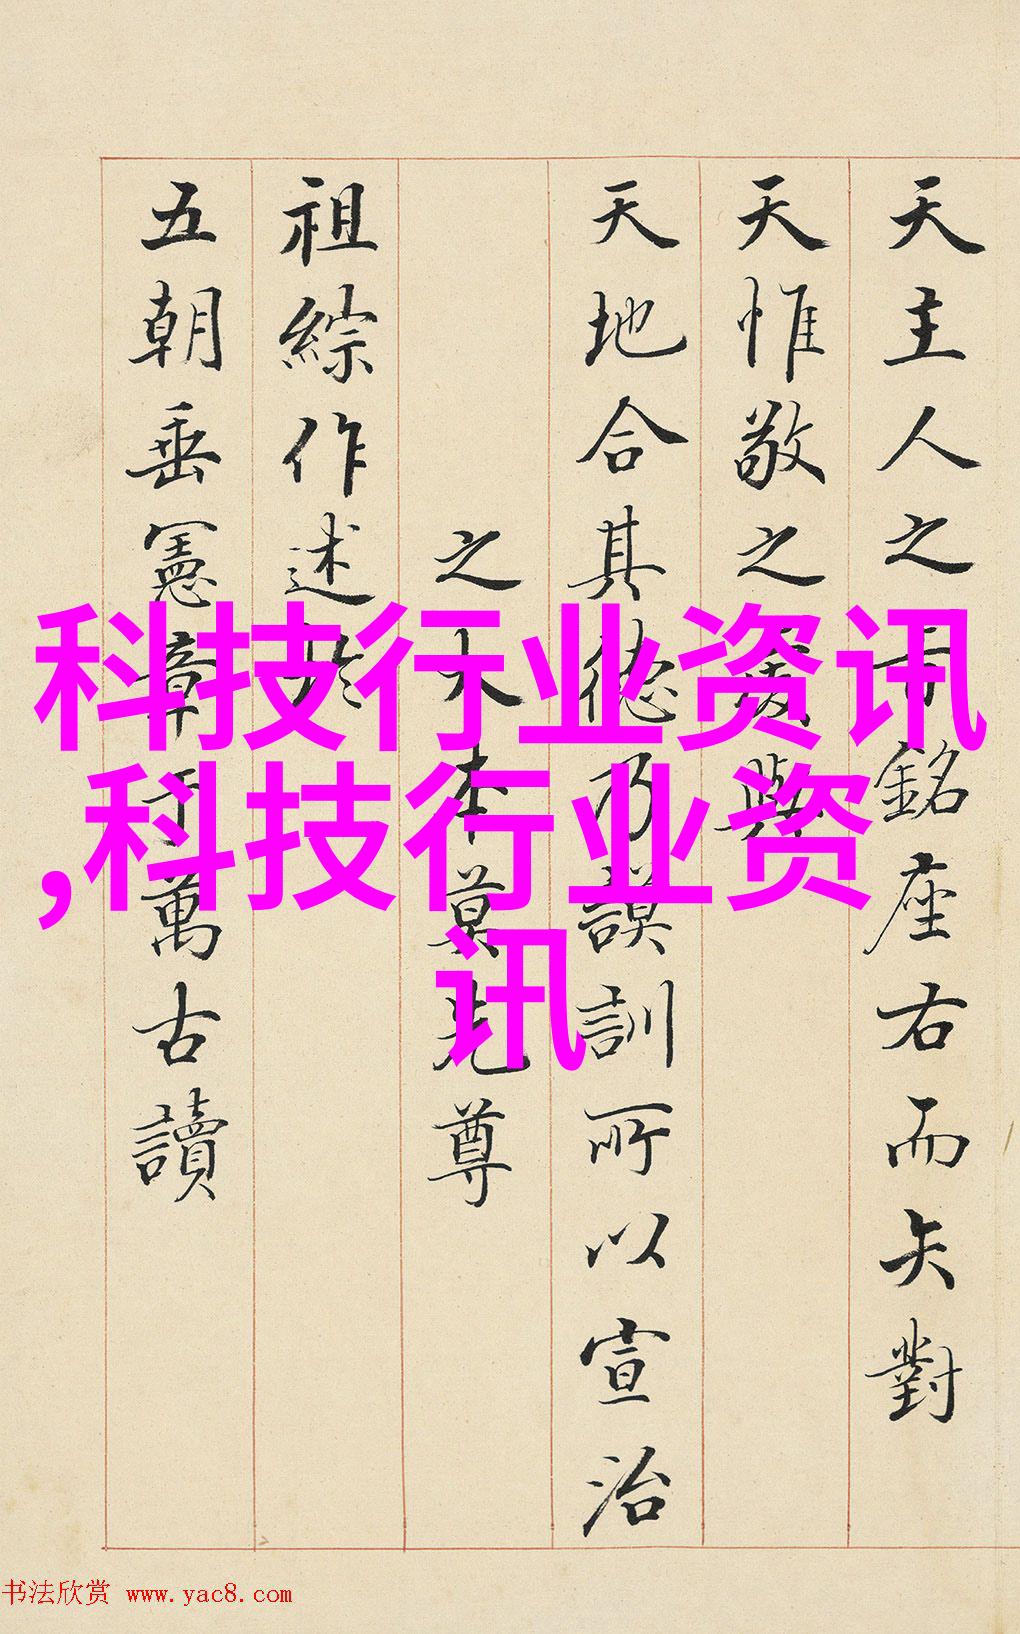 天主人之銘座右而矢對
天惟敬之與
天地合其德乃謨訓所以宣治
之大本莫先尊
祖綜作述於
五朝垂憲章于萬古讀
科技行业资讯
,科技行业资
讯
书法欣赏 www.yac8.com